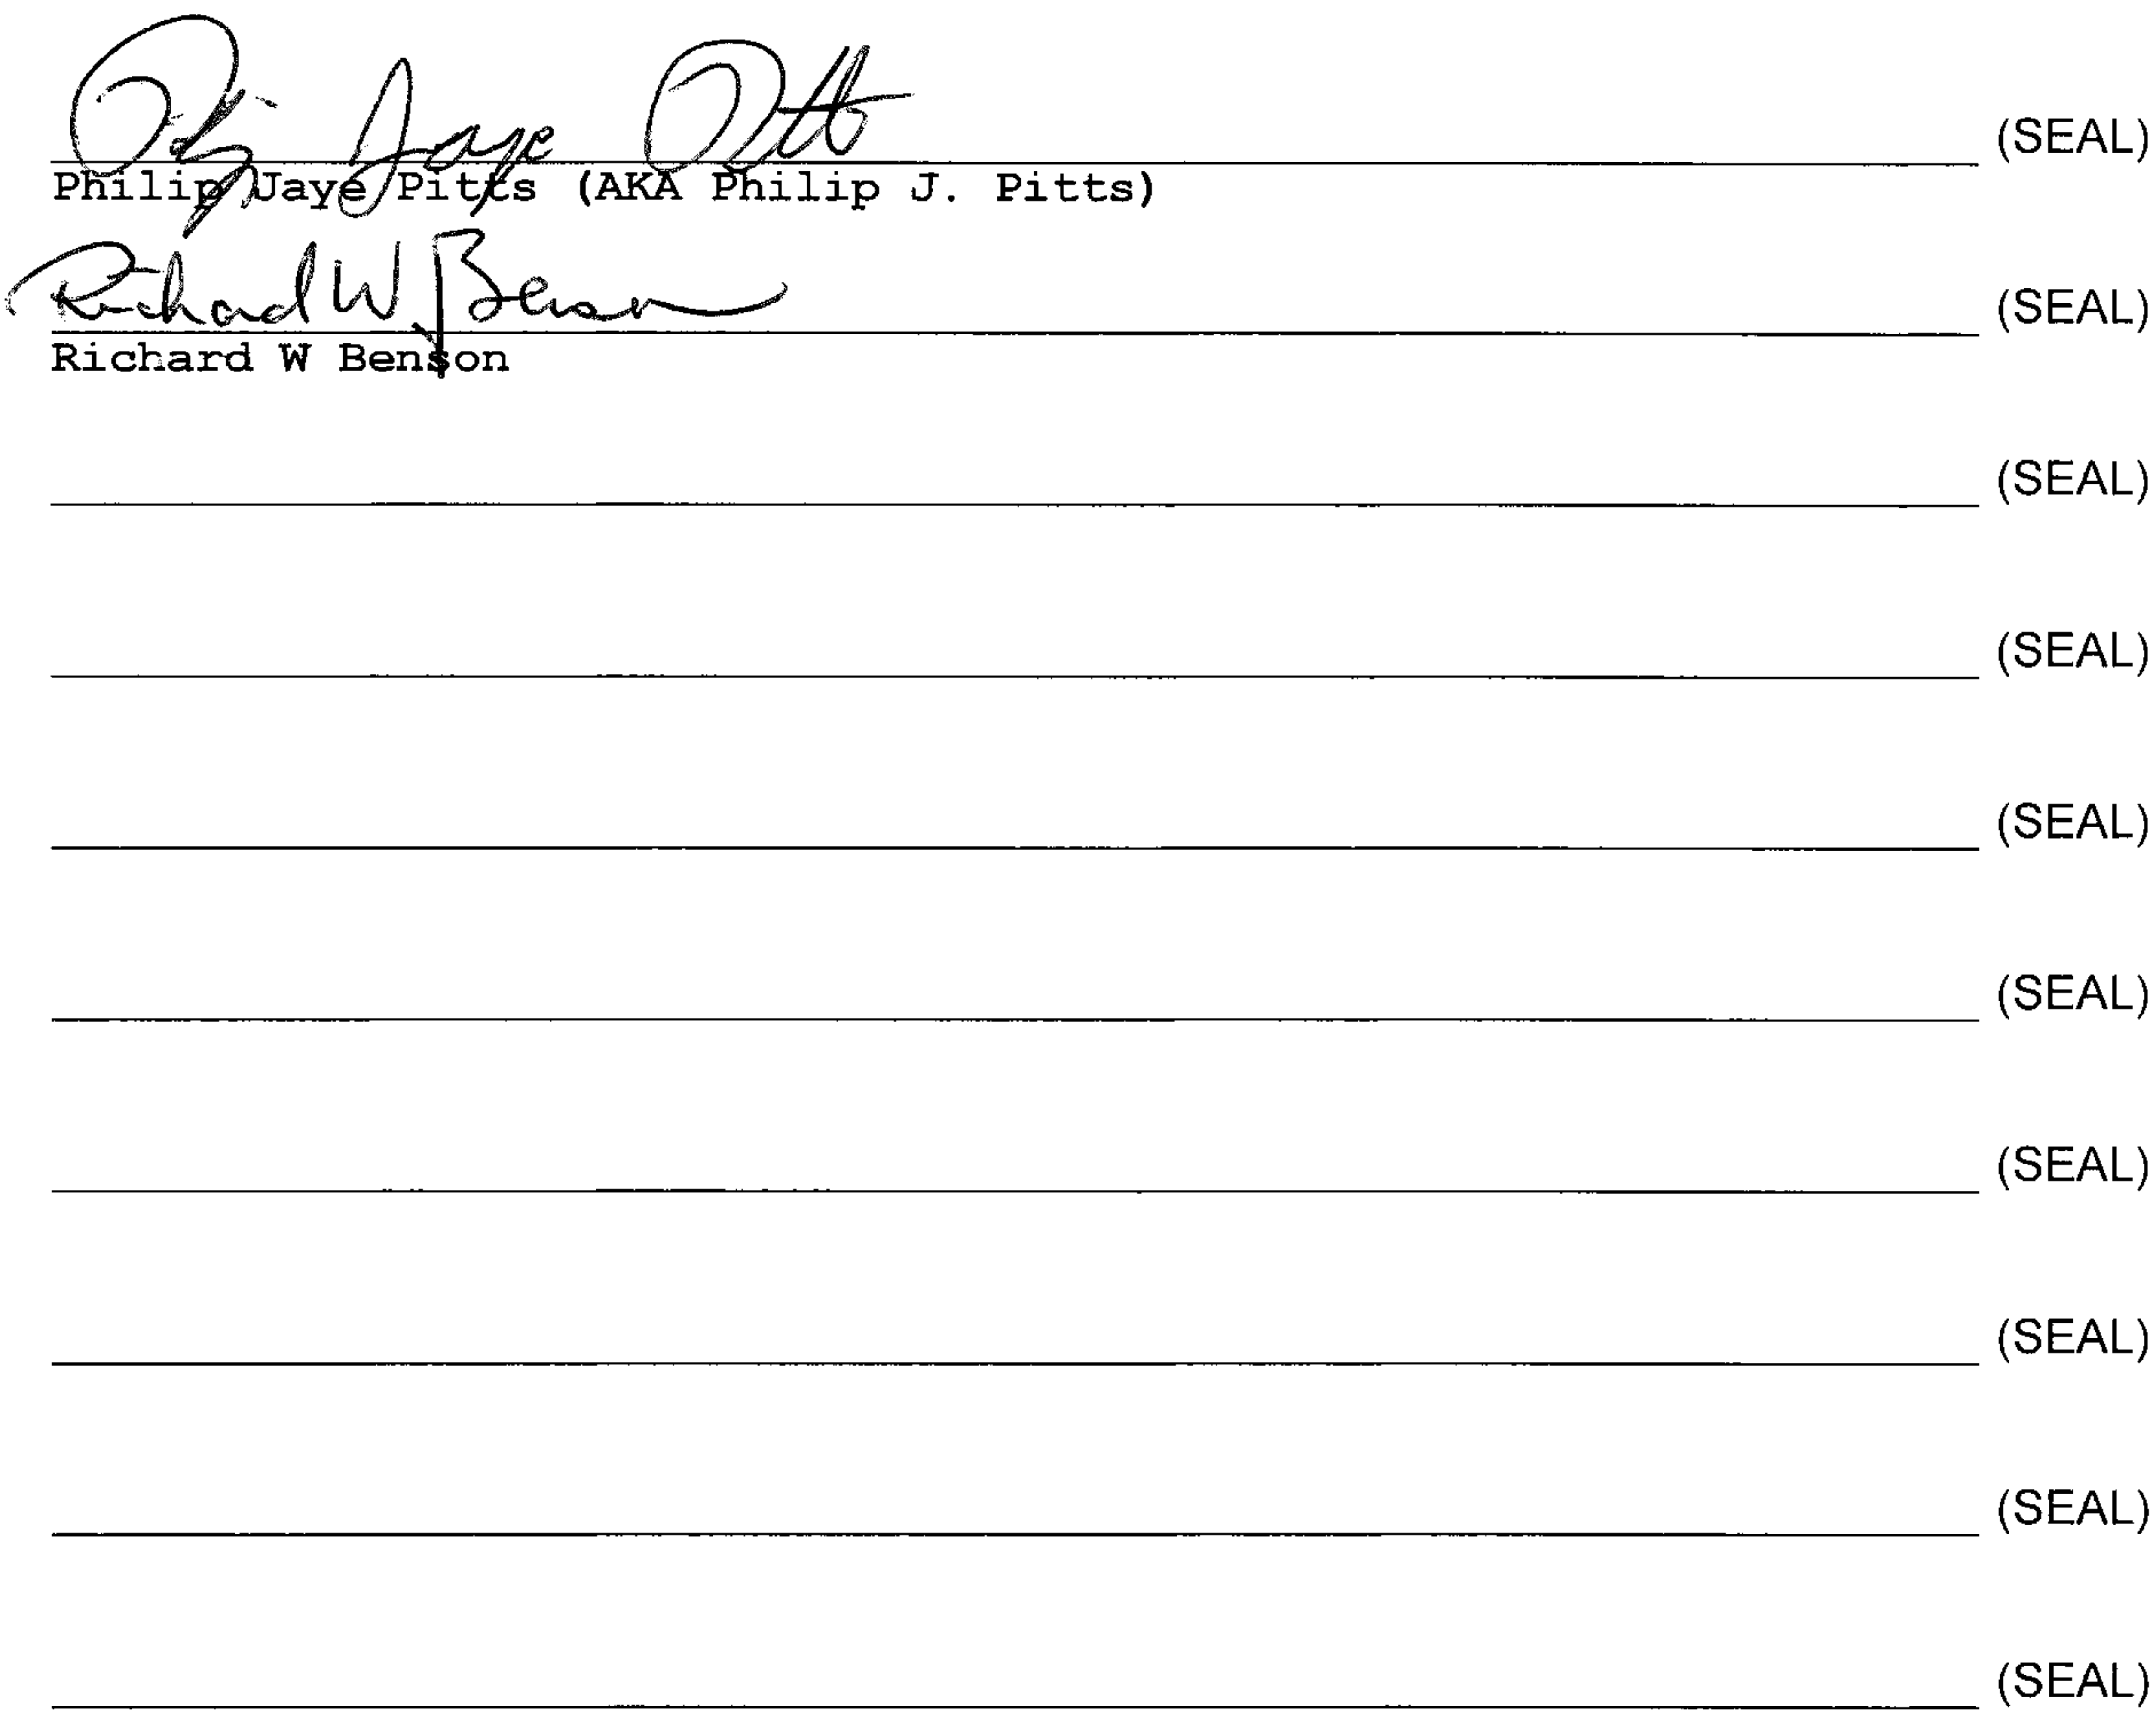 Philip Jaye Pitts (SEAL)
Philip Jaye Pitts (AKA Philip J. Pitts)
Richard W Benson (SEAL)
Richard W Benson
(SEAL)
(SEAL)
(SEAL)
(SEAL)
(SEAL)
(SEAL)
(SEAL)
(SEAL)